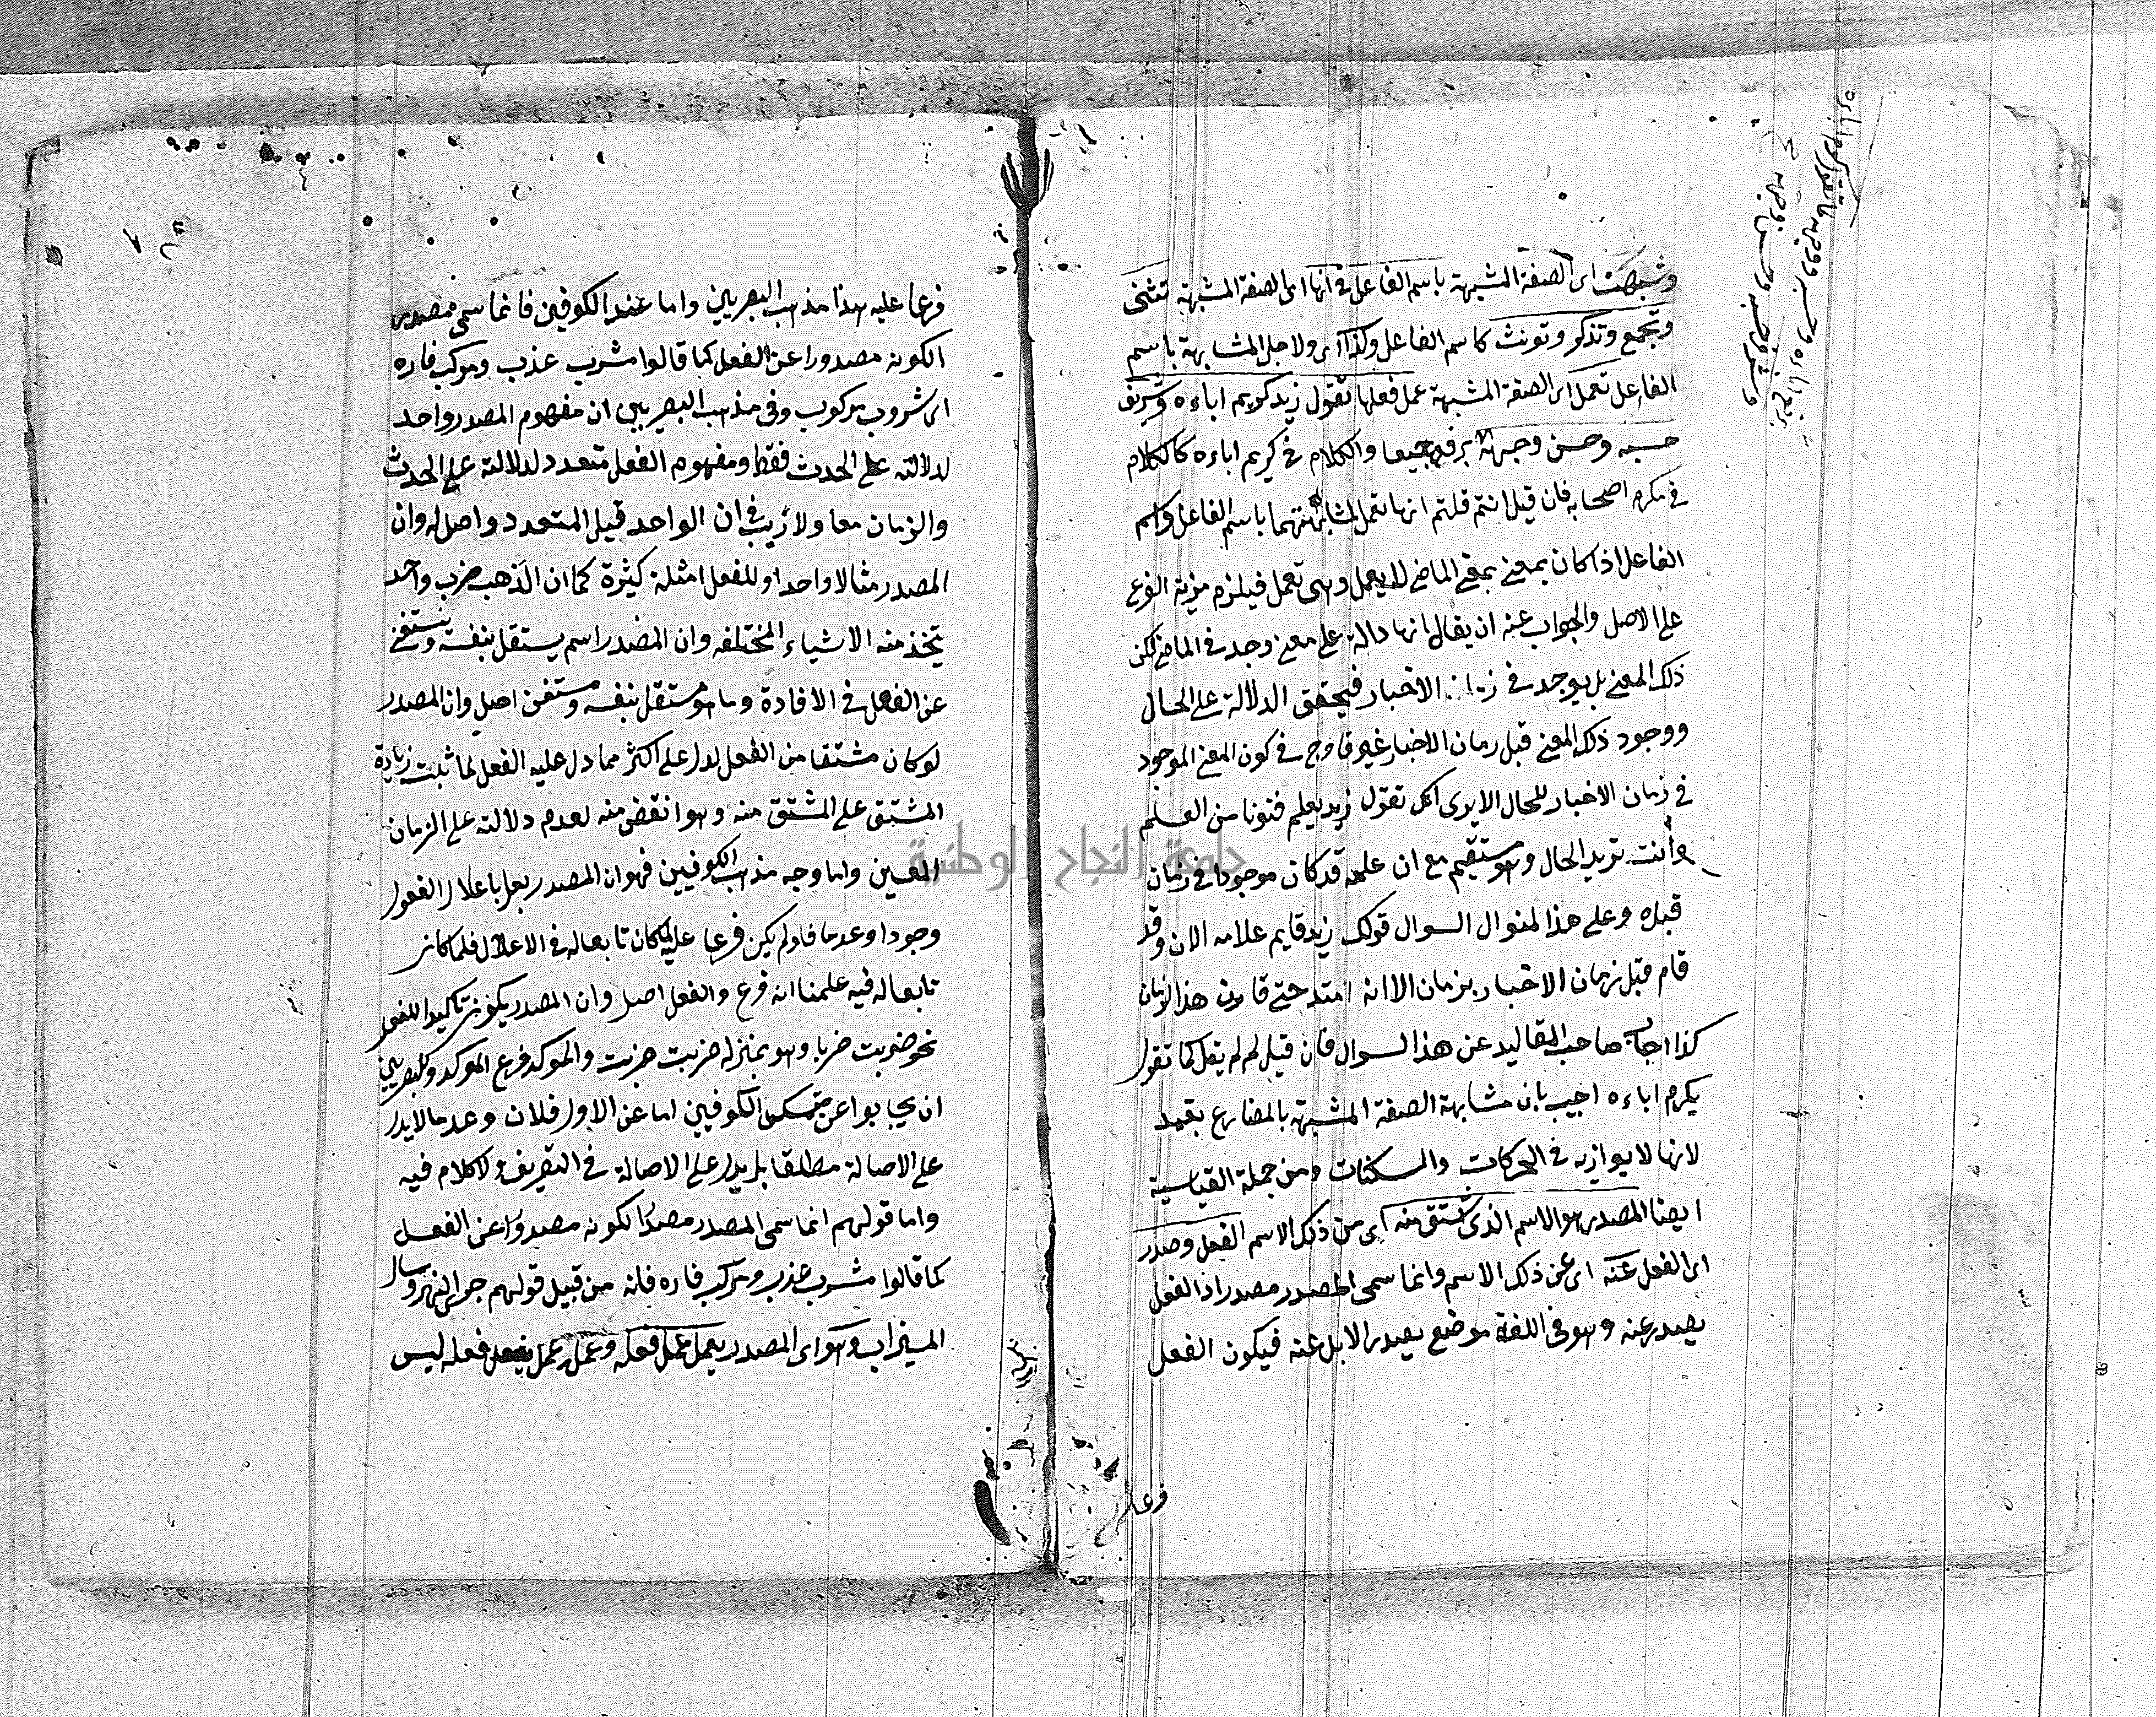 وشبهت اى الصفة المشبهة باسم الفاعل فى انها اى الصفة المشبهة تثنى
وتجمع وتذكر وتونث كاسم الفاعل وكذا اى ولاجل المشابهة باسم
الفاعل تعمل اى الصفة المشبهة عمل فعلها تقول زيد كريم اباءه وشريف
حسبه وحسن وجهه برفع جميعا والكلام فى كريم اباءه كالكلام
فى مكرم اصحابه فان قيل انتم قلتم انها تعمل لمشابهتهما باسم الفاعل واسم
الفاعل اذا كان بمعنى بمعنى الماضى لا يعمل وهى تعمل فيلزم مزية الفرع
على الاصل والجواب عنه ان يقال انها دالة على معنى وجد فى الماضى لكن
ذلك المعنى بل يوجد فى زمان الاخبار فيتحقق الدلالة على الحال
ووجود ذلك المعنى قبل زمان الاخبار غير قادح فى كون المعنى الموجود
فى زمان الاخبار للحال الا يرى انك تقول زيد يعلم فنونا من العلم
وأنت تريد الحال وهو مستقيم مع ان علمه قد كان موجودا فى زمان
قبله وعلى هذا المنوال السوال قولك زيد قايم غلامه الان وقد
قام قبل زمان الاخبار بزمان الا انه امتد حتى قارن هذا الزمان
كذا اجاب صاحب المقاليد عن هذا السوال فان قيل لم لم يقل كما تقول
يكرم اباءه اجيب بان مشابهة الصفة المشبهة بالمضارع بعيد
لانها لا يوازيه فى الحركات والسكنات ومن جملة القياسية
ايضا المصدر هو الاسم الذى اشتق منه اى من ذلك الاسم الفعل وصدر
اى الفعل عنه اى عن ذلك الاسم وانما سمى المصدر مصدرا اذ الفعل
يصدر عنه وهو فى اللغة موضع يصدر الابل عنه فيكون الفعل
فرعا
فرعا عليه هذا مذهب البصريين واما عند الكوفين فانما سمى مصدر
الكونه مصدورا عن الفعل كما قالوا مشرب عذب ومركب فاره
اى شروب مركوب وفى مذهب البصريين ان مفهوم المصدر واحد
لدلالته على الحدث فقط ومفهوم الفعل متعدد لدلالته على الحدث
والزمان معا ولا ريب فى ان الواحد قبل المتعدد واصل له وان
المصدر مثالا واحدا وللفعل امثلة كثيرة كما ان الذهب ضرب واحد
يتخذ منه الاشياء المختلفه وان المصدر اسم يستقل بنفسه ويستغنى
عن الفعل فى الافادة وما هو مستقل بنفسه ومستغن اصل وان المصدر
لو كان مشتقا من الفعل لدل على اكثر مما دل عليه الفعل لما ثبت زيادة
المشتق على المشتق منه وهو انقض منه لعدم دلالته على الزمان
المعين واما وجه مذهب الكوفيين فهو ان المصدر يعل باعلال الفعل
وجودا وعدما فلو لم يكن فرعا عليه لما كان تابعا له فى الاعلال فلما كان
تابعا له فيه علمنا انه فرع والفعل اصل وان المصدر يكون تاكيدا للفعل
نحو ضربت ضربا وهو بمنزلة ضربت ضربت والموكد فرع الموكد وللبصريين
ان يجابوا عن متمسك الكوفيين اما عن الاول فلان وعدما لا يدل
على الاصالة مطلقا بل يدل على الاصالة فى التصريف ولا كلام فيه
واما قولهم انما سمى المصدر مصدرا لكونه مصدورا عن الفعل
كما قالوا مشرب عذب ومركب فاره فانه من قبيل قولهم جرى النهر وسال
الميزاب وهو اى المصدر يعمل عمل فعله وعمل عمل فعله ليس
جامعة النجاح الوطنية